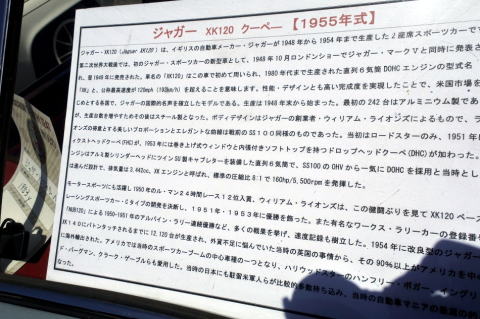 ジャガー XK120 クーペー【1955年式】
ジャガー・XK120（Jaguar XK120）は、イギリスの自動車メーカー・ジャガーが1948年から1954年まで生産した2座席スポーツカーです
第二次世界大戦後では、初のジャガー・スポーツカーの新型車として、1948年10月ロンドンショーでジャガー・マークVと同時に発表さ
れ、翌1949年に発売された。車名の「XK120」はこの車で初めて用いられ、1980年代まで生産された直列6気筒DOHCエンジンの型式名
「XK」と、公称最高速が120mph（192km/h）を超えることを意味します。性能・デザインとも高い完成度を実現したことで、米国市場を
じめとする各国で、ジャガーの国際的名声を確立したモデルである。生産は1948年末から始まった。最初の242台はアルミニウム製であ
が、生産台数を増やすためその後はスチール製となった。ボディデザインはジャガーの創業者・ウィリアム・ライオンズによるもので、ラ
オンズの得意とする美しいプロポーションとエレガントな曲線は戦前のSS100同様のものであった。当初はロードスターのみ、1951年に
ィクストヘッドクーペ(FHC)が、1953年には巻き上げ式ウィンドウと内張付きソフトトップを持つドロップヘッドクーペ(DHC)が加わった。
ンジンはアルミ製シリンダーヘッドにツインSU製キャブレターを装備した直列6気筒で、SS100のOHVから一気にDOHCを採用と当時とし
は進んだ設計で、排気量は3,442cc、XKエンジンと呼ばれ、標準の圧縮比8:1で160hp/5,500rpmを発揮した。
モータースポーツにも活躍し1950年のル・マン24時間レース12位入賞、ウィリアム・ライオンズは、この健闘ぶりを見てXK120ベース
レーシングスポーツカー・Cタイプの開発を決断し、1951年・1953年に優勝を飾った。また有名なワークス・ラリーカーの登録番号
「NUB120」による1950-1951年のアルパイン・ラリー連続優勝など、多くの戦果を挙げ、速度記録も樹立した。1954年に改良型のジャガー
XK140にバトンタッチされるまでに12,120台が生産され、外貨不足に悩んでいた当時の英国の事情から、その90%以上がアメリカを中心
に海外輸出された。アメリカでは当時のスポーツカーブームの中心車種の一つとなり、ハリウッドスターのハンフリー・ボガー、イングリ
ド・バーグマン、クラーク・ゲーブルらも愛用した。当時の日本にも駐留米軍人らが比較的多数持ち込み、当時の自動車マニアの